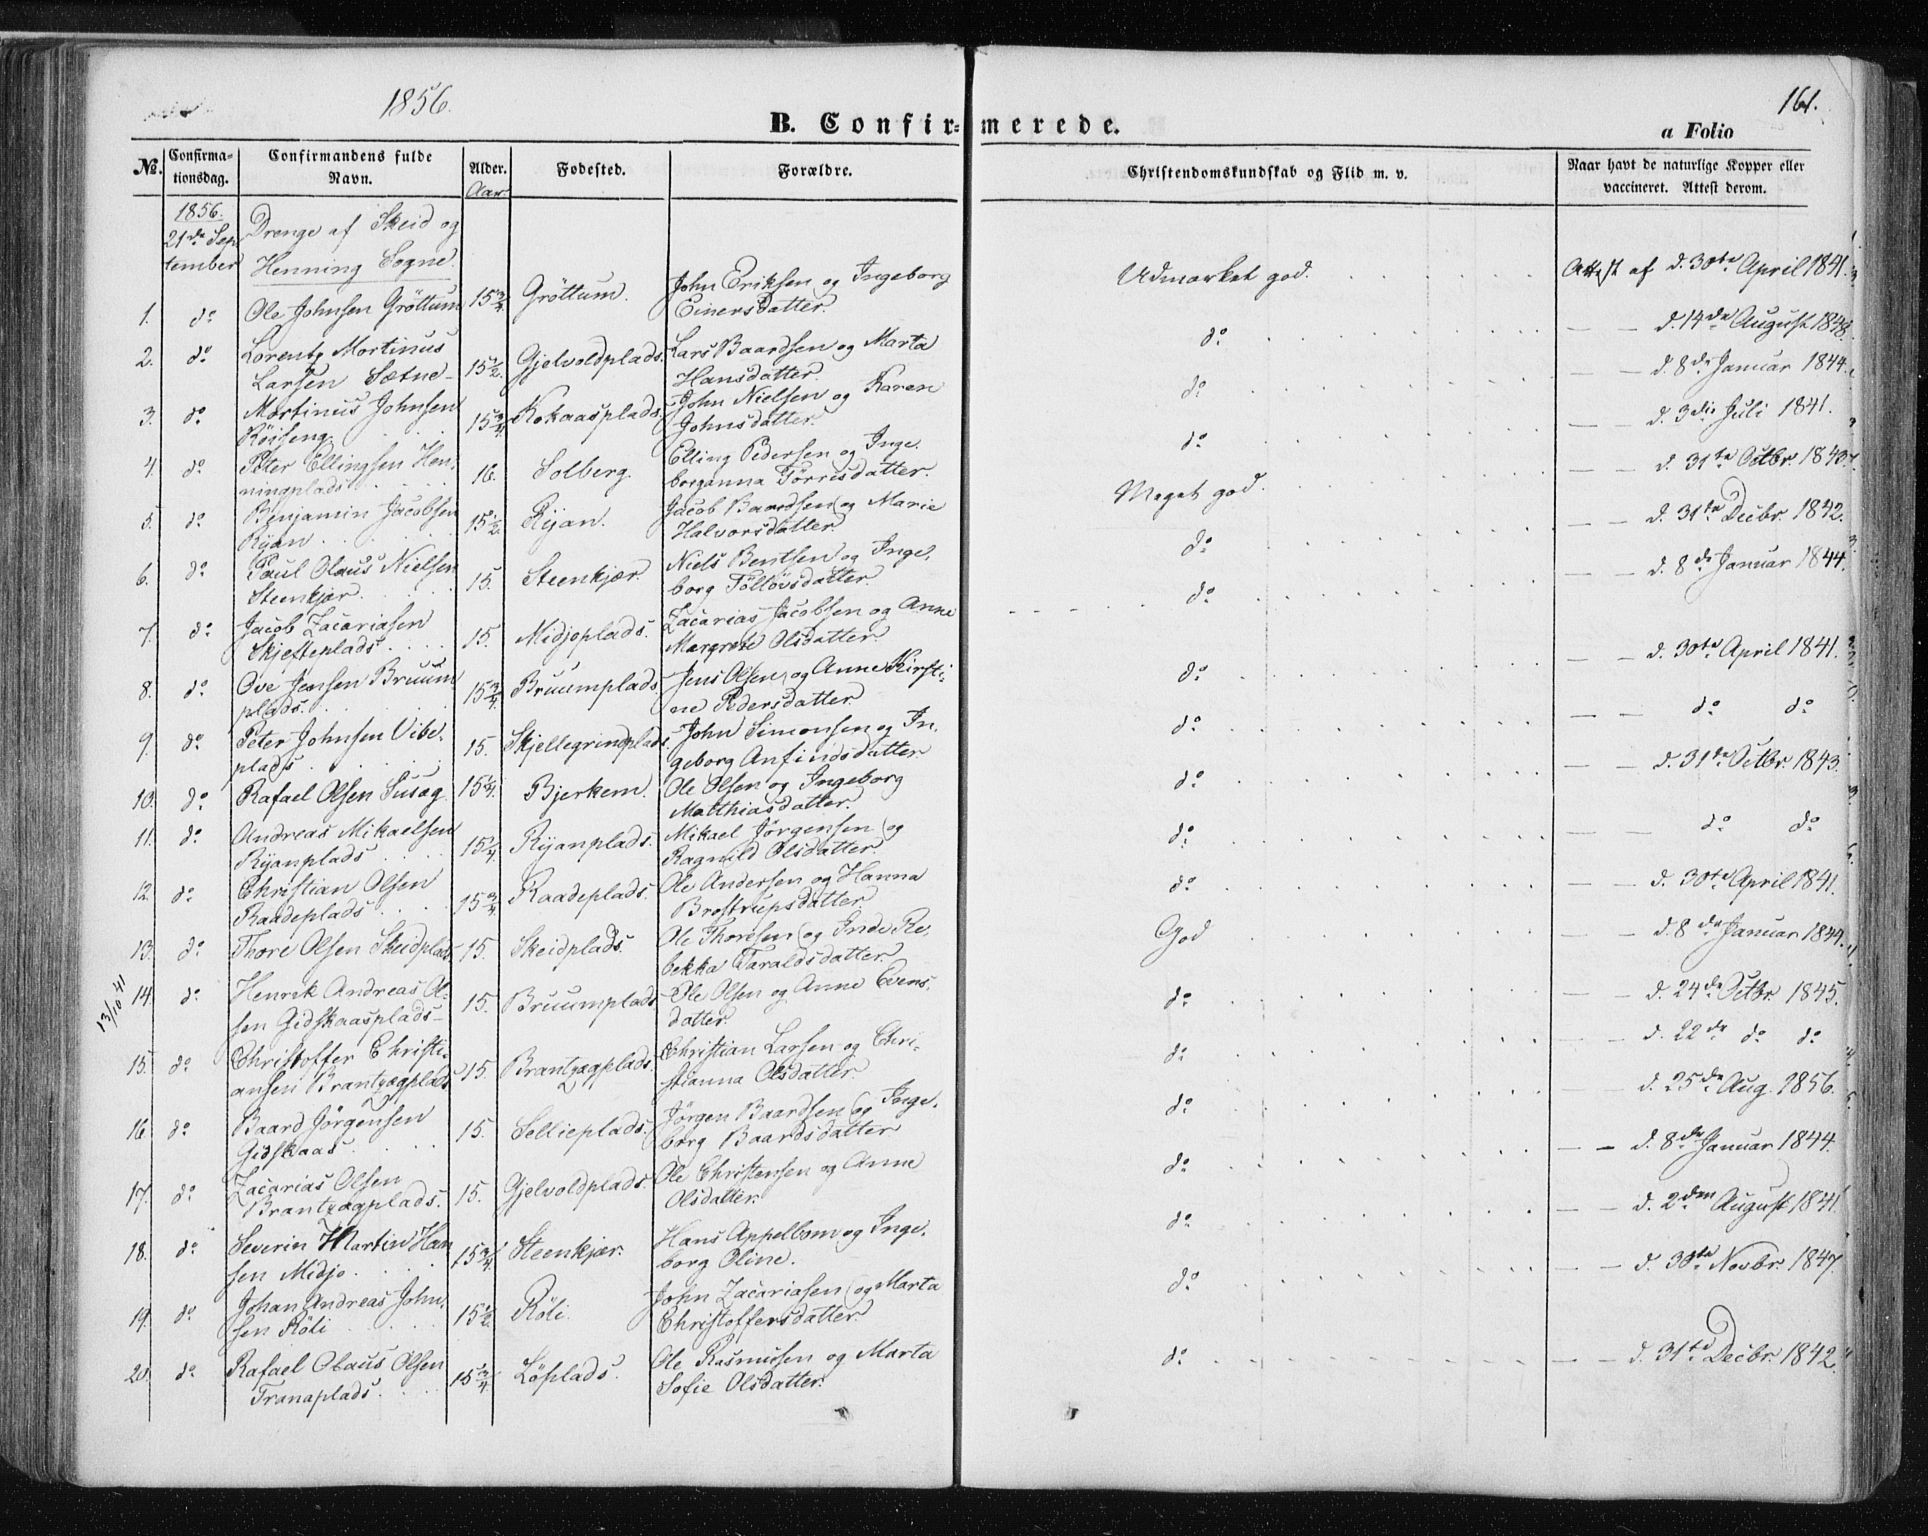 1856.
161.
B. Confirmerede.
a Folio
No. Confirmationsdag. Confirmandens fulde Navn. Alder. Aar. Fødested. Forældre. Christendomskundskab og Flid m. v. Naar havt de naturlige Kopper eller vaccineret. Attest derom.
1856. 21de September
Drenge af Skeid og Henning Sogne
1. do Ole Johnsen Gröttum 15 3/4 Gröttum. John Eriksen og Ingeborg Einersdatter. Udmærket god. Attest af d. 30te April 1841.
2. do Lorentz Mortinus Larsen Sætne 15 1/2. Gjelvoldplads. Lars Baardsen og Marta Hansdatter. do — — d. 14de August 1848.
3. do Martinus Johnsen Röiseng 15 3/4. Kokaasplads. John Nielsen og Karen Johnsdatter. do — — d. 8de Januar 1844.
4. do Peter Ellingsen Henningplads 16. Solberg. Elling Pedersen og Ingeboranna Törresdatter. do d. 3die Juli 1841.
5. do Benjamin Jacobsen Ryan 15 1/2. Ryan. Jacob Baardsen og Marie Halvorsdatter Meget god. d. 31te Octbr. 1843.
6. do Paul Olaus Nielsen Steenkjær 15. Steenkjær. Niels Bentsen og Ingeborg Föllövsdatter do — — d. 31te Decbr. 1842.
7. do Jacob Zacariasen Skjefteplads 15. Midjoplads. Zacarias Jacobsen og Anne Margrete Olsdatter do — — d. 8de Januar 1844.
8. do Ove Jensen Bruumplads. 15 3/4 Bruumplads. Jens Olsen og Anne Kirstine Pedersdatter do — — d. 30te April 1841.
9. do Peter Johnsen Vibeplads 15. Skjellegrindplads. John Simonsen og Ingeborg Anfindsdatter do — — do do
10. do Rafael Olsen Susag 15 1/4. Bjerkem. Ole Olsen og Ingeborg Matthiasdatter. do — — d. 31te Octbr. 1843.
11. do Andreas Mikaelsen Ryanplads 15 1/4. Ryanplads. Mikael Jörgensen og Ragnild Olsdatter. do — — do do
12. do Christian Olsen Raadeplads 15 3/4 Raadeplads. Ole Andersen og Hanna Brostrupsdatter do — — d. 30te April 1841.
13. do Thore Olsen Skeidplads 15. Skeidplads. Ole Thoresen og Inde Rebekka Taraldsdatter. God — — d. 8de Januar 1844.
13/10 41
14. do Henrik Andreas Olsen Gidskaasplads 15. Bruumplads Ole Olsen og Anne Evensdatter. do — — d. 24de Octbr. 1845.
15. do Christoffer Christiansen Brantzægplads 15. Brantzægplads. Christian Larsen og Christianna Olsdatter. do — — d. 22de do do
16. do Baard Jörgensen Gidskaas 15. Sellieplads. Jörgen Baardsen og Ingeborg Baardsdatter do — — d. 25de Aug. 1856.
17. do Zacarias Olsen Brantzægplads. 15. Gjelvoldplads. Ole Christensen og Anne Olsdatter. do — — d. 8de Januar 1844.
18. do Severin Martin Hansen Midjo 15 3/4. Steenkjær. Hans Appelbom og Ingeborg Oline. do — — d. 2den August 1841.
19. do Johan Andreas Johnsen Röli 15 1/2 Röli. John Zacariasen og Marta Christoffersdatter. do — — d. 30te Novbr. 1847.
20. do Rafael Olaus Olsen Tranaplads. 15 3/4. Löplads. Ole Rasmusen og Marta Sofie Olsdatter. do — — d. 31te Decbr. 1842.